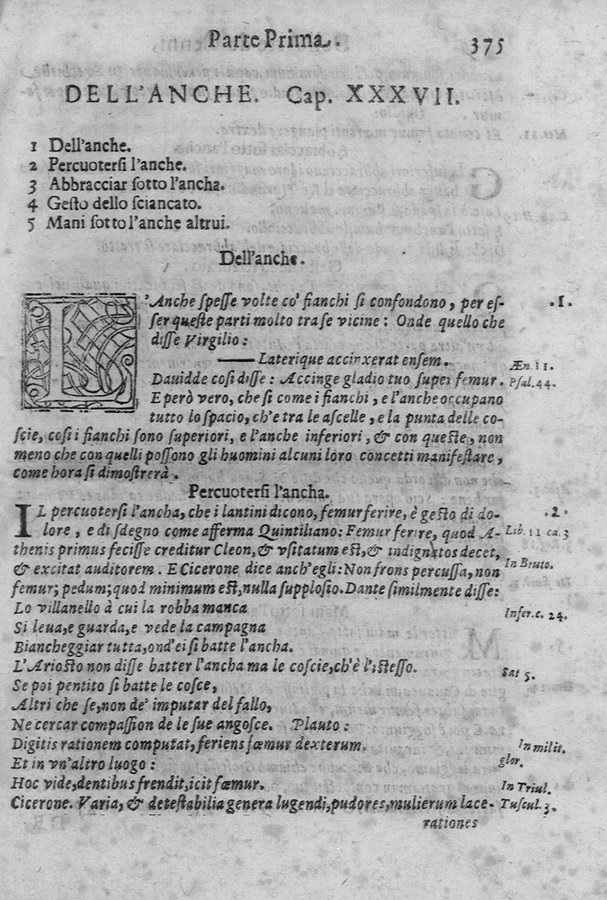 Parte Prima. 375
DELL'ANCHE. Cap. XXXVII.
1 Dell'anche.
2 Percuotersi l'anche.
3 Abbracciar sotto l'ancha.
4 Gesto dello sciancato.
5 Mani sotto l'anche altrui.
Dell'anche.
L'Anche spesse volte co' fianchi si confondono, per es- .1.
ser queste parti molto tra se vicine: Onde quello che
disse Virgilio:
—— Laterique accinxerat ensem. Æn. 11.
Dauidde cosi disse: Accinge gladio tuo super femur. Psal. 44.
E però vero, che si come i fianchi, e l'anche occupano
tutto lo spacio, ch'e tra le ascelle, e la punta delle co-
scie, cosi i fianchi sono superiori, e l'anche inferiori, & con queste, non
meno che con quelli possono gli huomini alcuni loro concetti manifestare,
come hora si dimostrerà.
Percuotersi l'ancha.
IL percuotersi l'ancha, che i lantini dicono, femur ferire, è gesto di do- .2.
lore, e di sdegno come afferma Quintiliano: Femur ferire, quod A- Lib. 11 ca. 3
thenis primus fecisse creditur Cleon, & vsitatum est, & indignatos decet,
& excitat auditorem. E Cicerone dice anch'egli: Non frons percussa, non In Bruto.
femur; pedum; quod minimum est, nulla supplosio. Dante similmente disse:
Lo villanello à cui la robba manca Infer. c. 24.
Si leua, e guarda, e vede la campagna
Biancheggiar tutta, ond'ei si batte l'ancha.
L'Ariosto non disse batter l'ancha ma le coscie, ch'è l'istesso. Sat 5.
Se poi pentito si batte le cosce,
Altri che se, non de' imputar del fallo,
Ne cercar compassion de le sue angosce. Plauto:
Digitis rationem computat, feriens fœmur dexterum. In milit.
Et in vn'altro luogo: glor.
Hoc vide, dentibus frendit, icit fœmur. In Trúl.
Cicerone. Varia, & detestabilia genera lugendi, pudores, mulierum lace- Tuscul. 3.
rationes